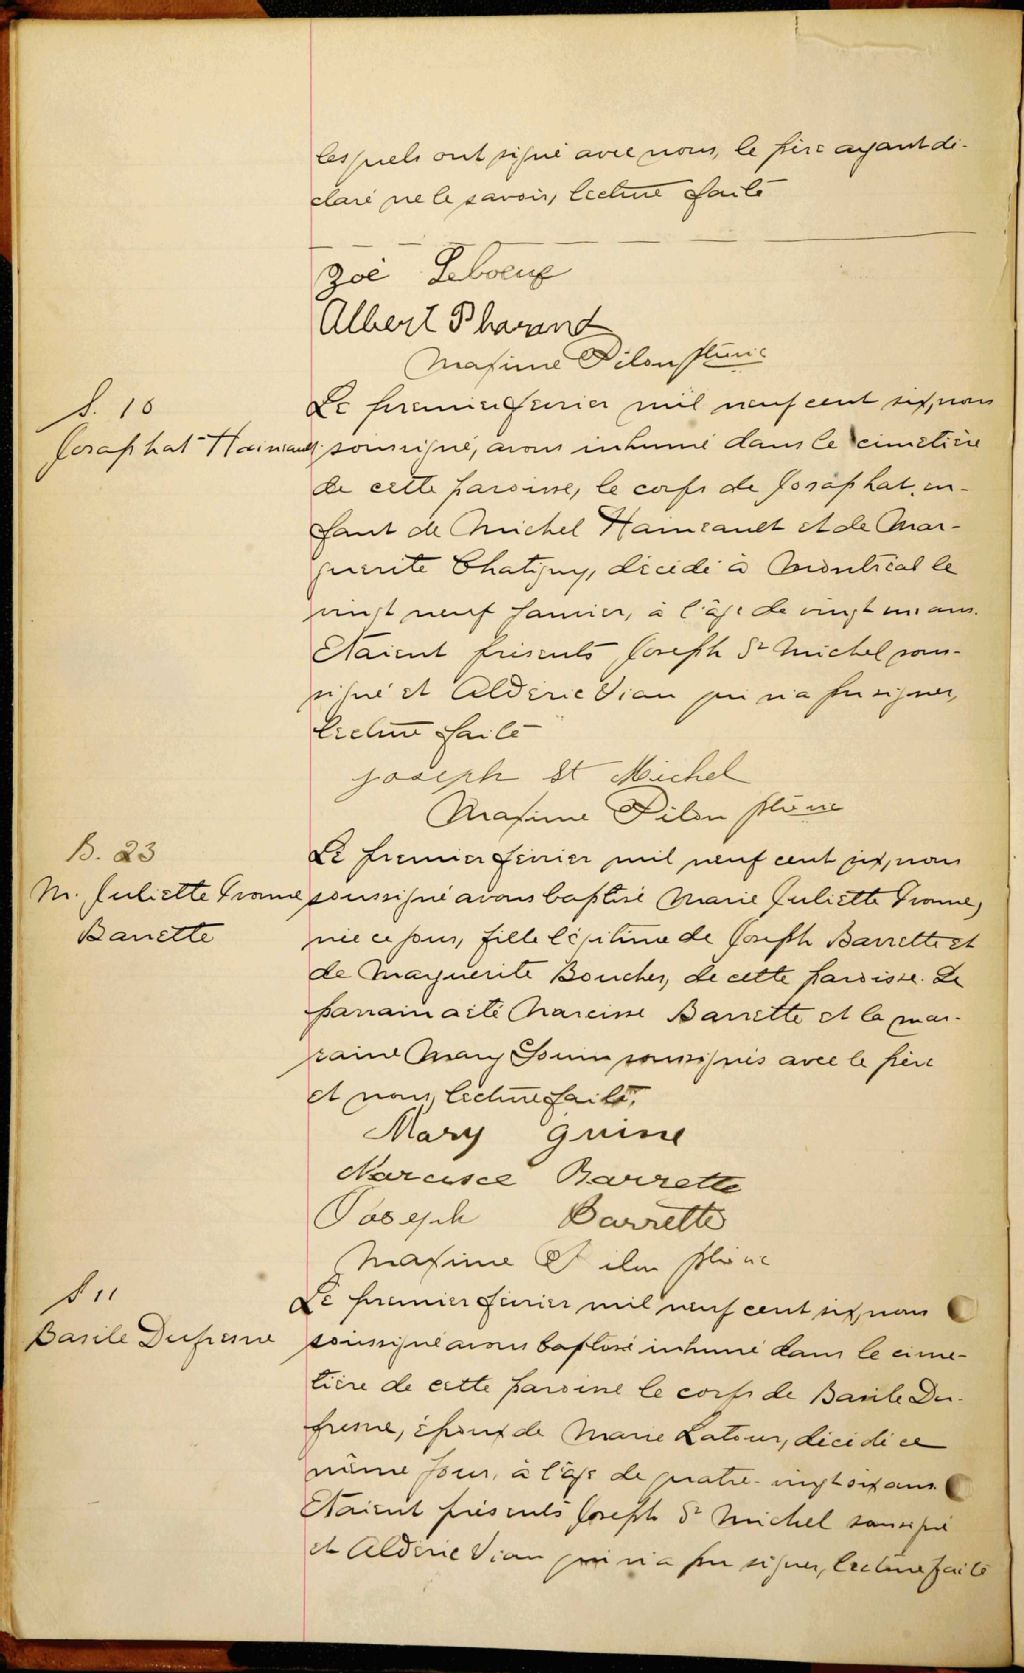 lesquels ont signé avec nous, le père ayant dé-
claré ne le savoir, lecture faite
Zoé Leboeuf
Albert Pharand
Maxime Pilon ptre
S. 10
Josaphat Haineault
Le premier février mil neuf cent six, nous
soussigné, avons inhumé dans le cimetière
de cette paroisse, le corps de Josaphat, en-
fant de Michel Haineault et de Mar-
guerite Chatigny, décédé à Montréal le
vingt neuf janvier, à l'âge de vingt un ans.
Etaient présents Joseph St Michel sous-
signé et Aldéric Viau qui n'a pu signer,
lecture faite
Joseph St Michel
Maxime Pilon ptre
B. 23
M. Juliette Yvonne
Barrette
Le premier février mil neuf cent six, nous
soussigné avons baptisé Marie Juliette Yvonne,
née ce jour, fille légitime de Joseph Barrette et
de Marguerite Boucher, de cette paroisse. Le
parrain a été Narcisse Barrette et la mar-
raine Mary soussignés avec le père
et nous, lecture faite.
Mary Guinn
Narcisse Barrette
Joseph Barrette
Maxime Pilon ptre
S 11
Basile Dufresne
Le premier février mil neuf cent six, nous
soussigné avons baptisé inhumé dans le cime-
tière de cette paroisse le corps de Basile Du-
fresne, époux de Marie Latour, décédé ce
même jour, à l'âge de quatre-vingt six ans.
Etaient présents Joseph St Michel soussigné
et Aldéric Viau qui n'a pu signer, lecture faite